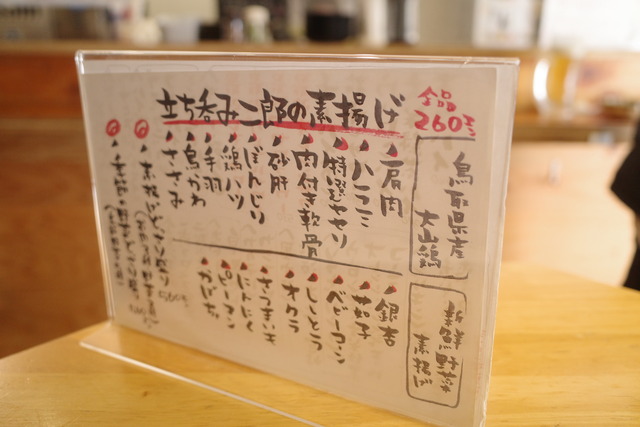 立ち呑み二郎の素揚げ
全品
260
鳥取県産
大山鶏
肩肉
ハラミ
特選せせり
肉付き軟骨
砂肝
ぼんじり
鶏ハツ
手羽
鳥かわ
ささみ
新鮮野菜
素揚げ
銀杏
茄子
ベビーコーン
ししとう
オクラ
さつまい王
にんにく
ピーマン
かぼちゃ